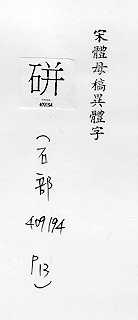 宋體母稿異體字
硑
(石部
409194
P13)